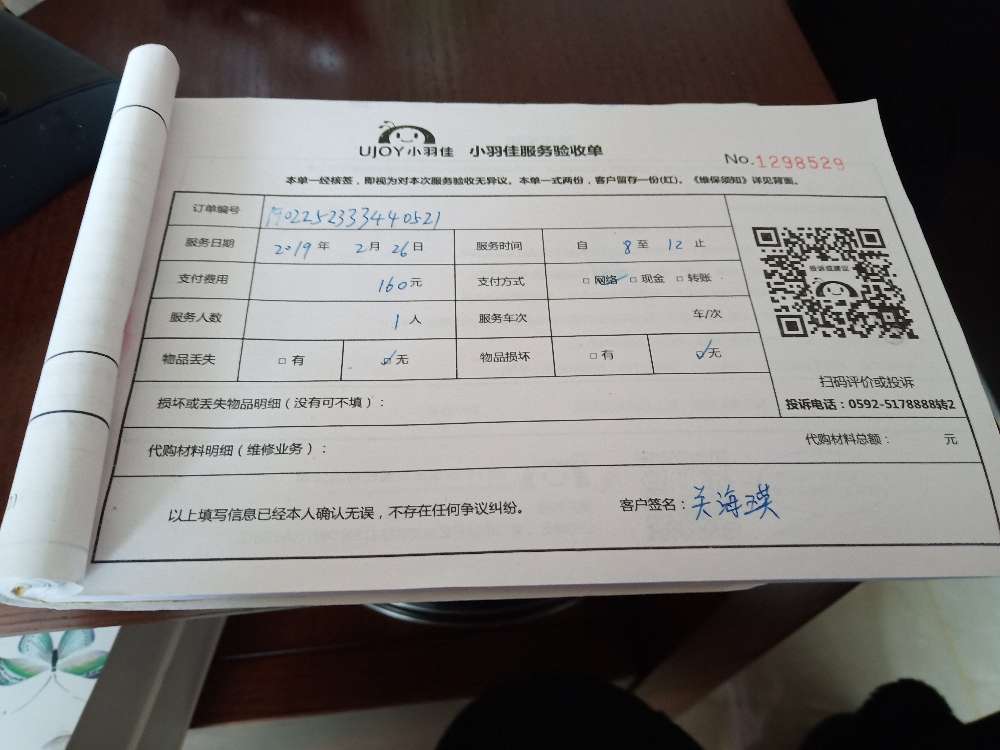 UJOY小羽佳 小羽佳服务验收单
No.1298529
本单一经核签，即视为对本次服务验收无异议。本单一式两份，客户留存一份(红)。《维保须知》详见背面。
订单编号 02252333440521
服务日期 2019年 2月 26日 服务时间 自 8 至 12 止
支付费用 160元 支付方式 □网络 □现金 □转账
服务人数 1人 服务车次 车/次
物品丢失 □有 ☑无 物品损坏 □有 ☑无
投诉或建议
扫码评价或投诉
投诉电话：0592-5178888转2
损坏或丢失物品明细（没有可不填）：
代购材料明细（维修业务）： 代购材料总额： 元
以上填写信息已经本人确认无误，不存在任何争议纠纷。 客户签名：关海瑛